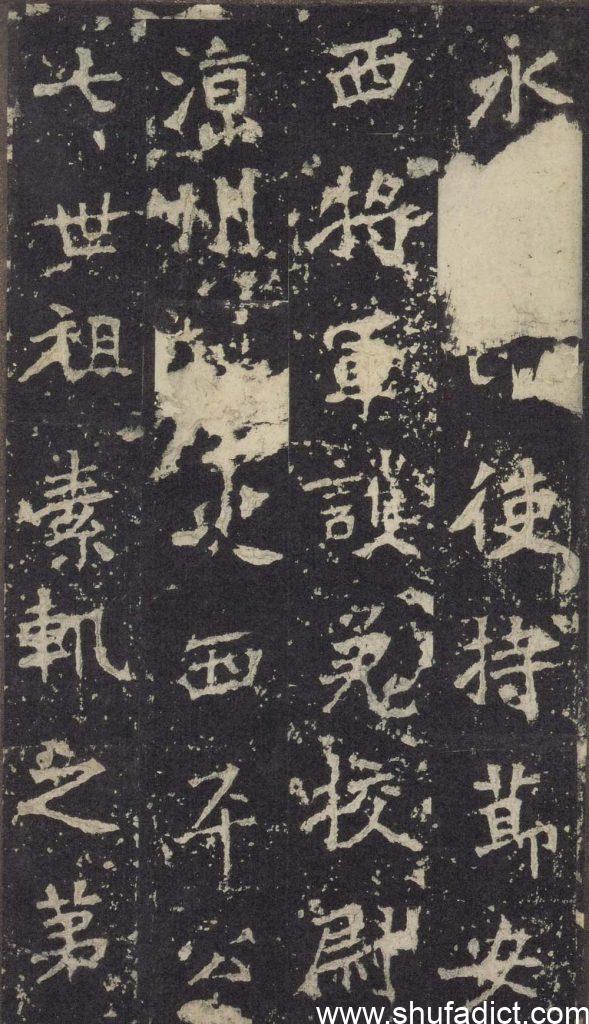 永使持節安
西將軍護羌校尉
涼州史西平公
七世祖素軌之第
www.shufadict.com